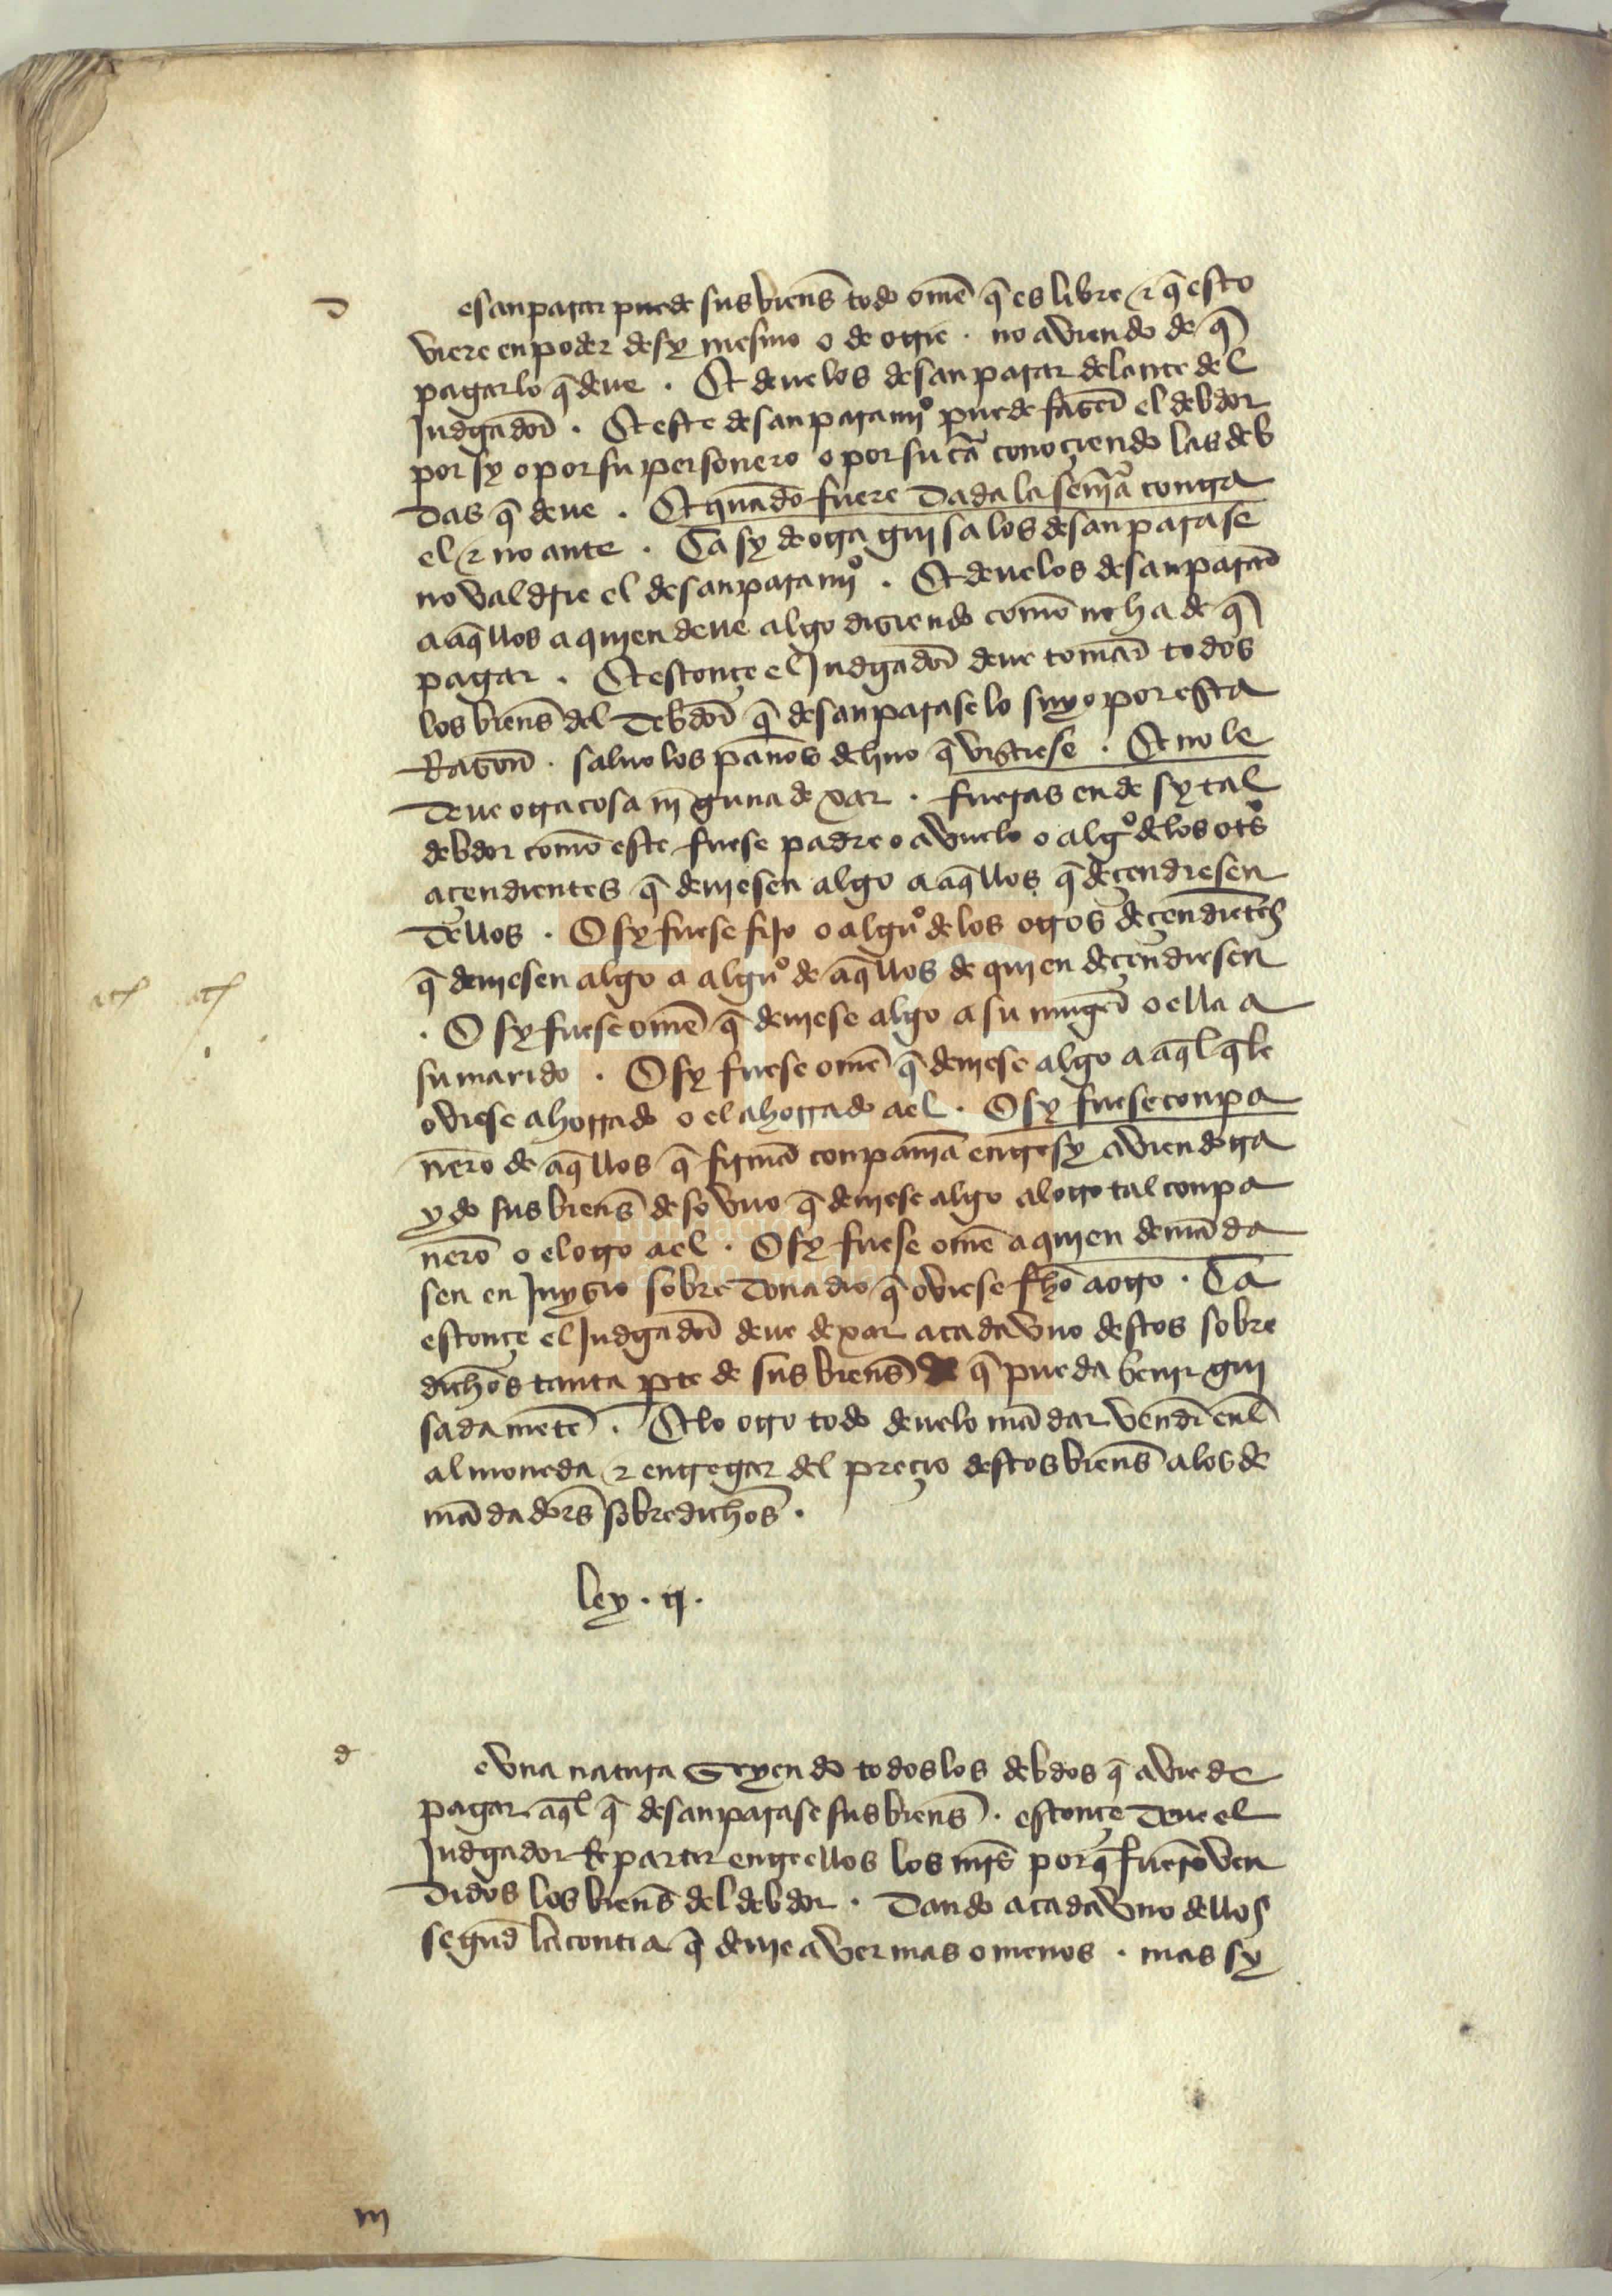 d esanparar puede sus bienẽs todo omẽ q̃ es libre ⁊ q̃ esto
viere en poder de sy mesmo o de otrie · no aviendo de q̃
pagar lo q̃ deue · Et deue los desanparar delante del
Judgador̃ · Et este desanparamjº puede fazer̃ el debdor
por sy o por su personero o por su cãr conoçiendo las deb
das q̃ deue · Et quãdo fuere dada la senᷓa contra
el ⁊ no ante · Ca sy de otra guisa los desanparase
no valdrie el desanparamjº · Et deue los desanparar̃
a aq̃llos a quien deue algo diziendo comõ no ha de q̃
pagar · Et estonçe el Judgador̃ deue tomar̃ todos
los bienẽs del debdor̃ q̃ desanparase lo suyo por esta
Razon̄ · saluo los pan̄os de lino q̃ vistiese · Et no le
deue otra cosa nj̃guna dexar · fueras ende sy tal
debdor comõ este fuese padre o avuelo o algº de los otºs
açendientes q̃ deuiesen algo a aq̃llos q̃ deçendiesen
dellos · O sy fuese fijo o algũº de los otros deçendiẽtes
q̃ deuiesen algo a algũº de aq̃llos de quien deçendiesen
· O sy fuese omẽ q̃ deuiese algo a su muger̃ o ella a
su marido · O sy fuese omẽ q̃ deuiese algo a aq̃l q̃ le
oviese ahorrado o el ahorrado a el · O sy fuese conpa
nero de aq̃llos q̃ firmã conpanj̃a entre sy aviendo tra
ydo sus bienẽs de so vno q̃ deuiese algo al otro tal conpa
nerõ o el otro a el · O sy fuese omẽ a quien demãda
sen en Juyzio sobre donadio q̃ oviese fh̃o a otro · Ca
estonçe el Judgador̃ deue dexar a cada vno destos sobre
dichos tanta ꝑte de sus bienẽs q̃ pueda beuir gui
sadamẽte · Et lo otro todo deue lo mãdar vender̃ en l̃
almoneda ⁊ entregar del preçio destos bienẽs a los de
mãdadorẽs sobredichos ·
ley · ij ·
d e vna natura seyendo todos los debdos q̃ avie de
pagar aq̃l q̃ desanparase sus bienẽs · estonçe deue el
Judgador Repartir entre ellos los mr̃s por q̃ fuerõ ven
didos los bienẽs del debdor · Dando a cada vno dellos
segund̃ la contia q̃ deuie aver mas o menos · mas sy